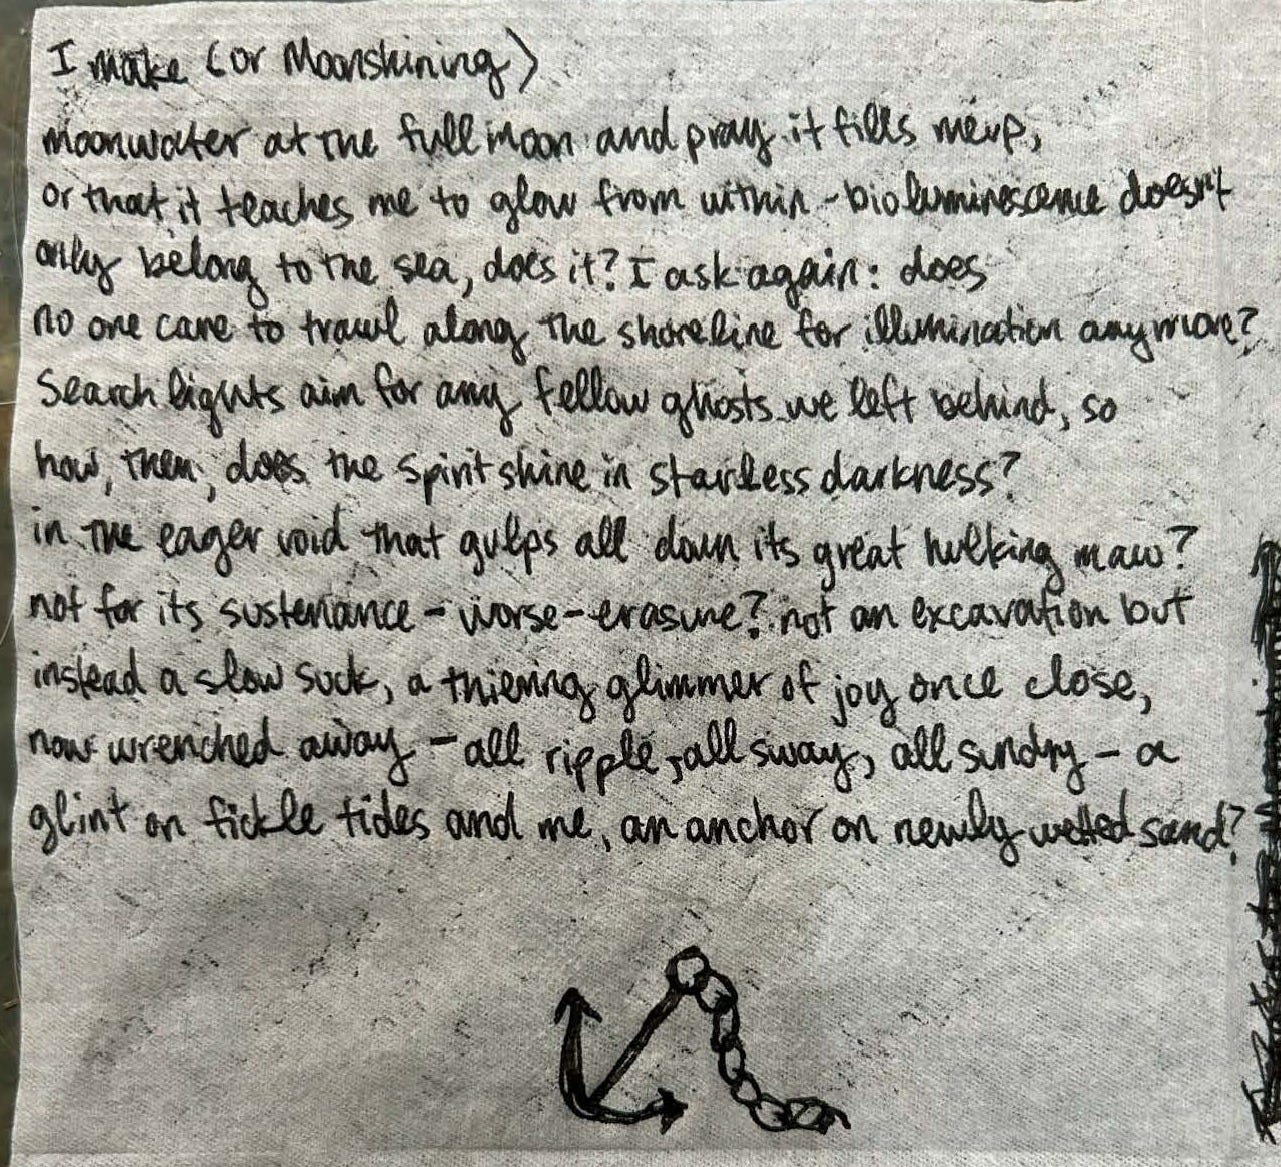 I make (or Moonshining)
moonwater at the full moon and pray it fills me up,
or that it teaches me to glow from within - bioluminescence doesn't
only belong to the sea, does it? I ask again: does
no one care to trawl along the shoreline for illumination anymore?
Searchlights aim for any fellow ghosts we left behind, so
how, then, does the spirit shine in starless darkness?
in the eager void that gulps all down its great hulking maw?
not for its sustenance - worse - erasure? not an excavation but
instead a slow suck, a thieving glimmer of joy once close,
now wrenched away - all ripple, all sway, all sundry - a
glint on fickle tides and me, an anchor on newly wetted sand?